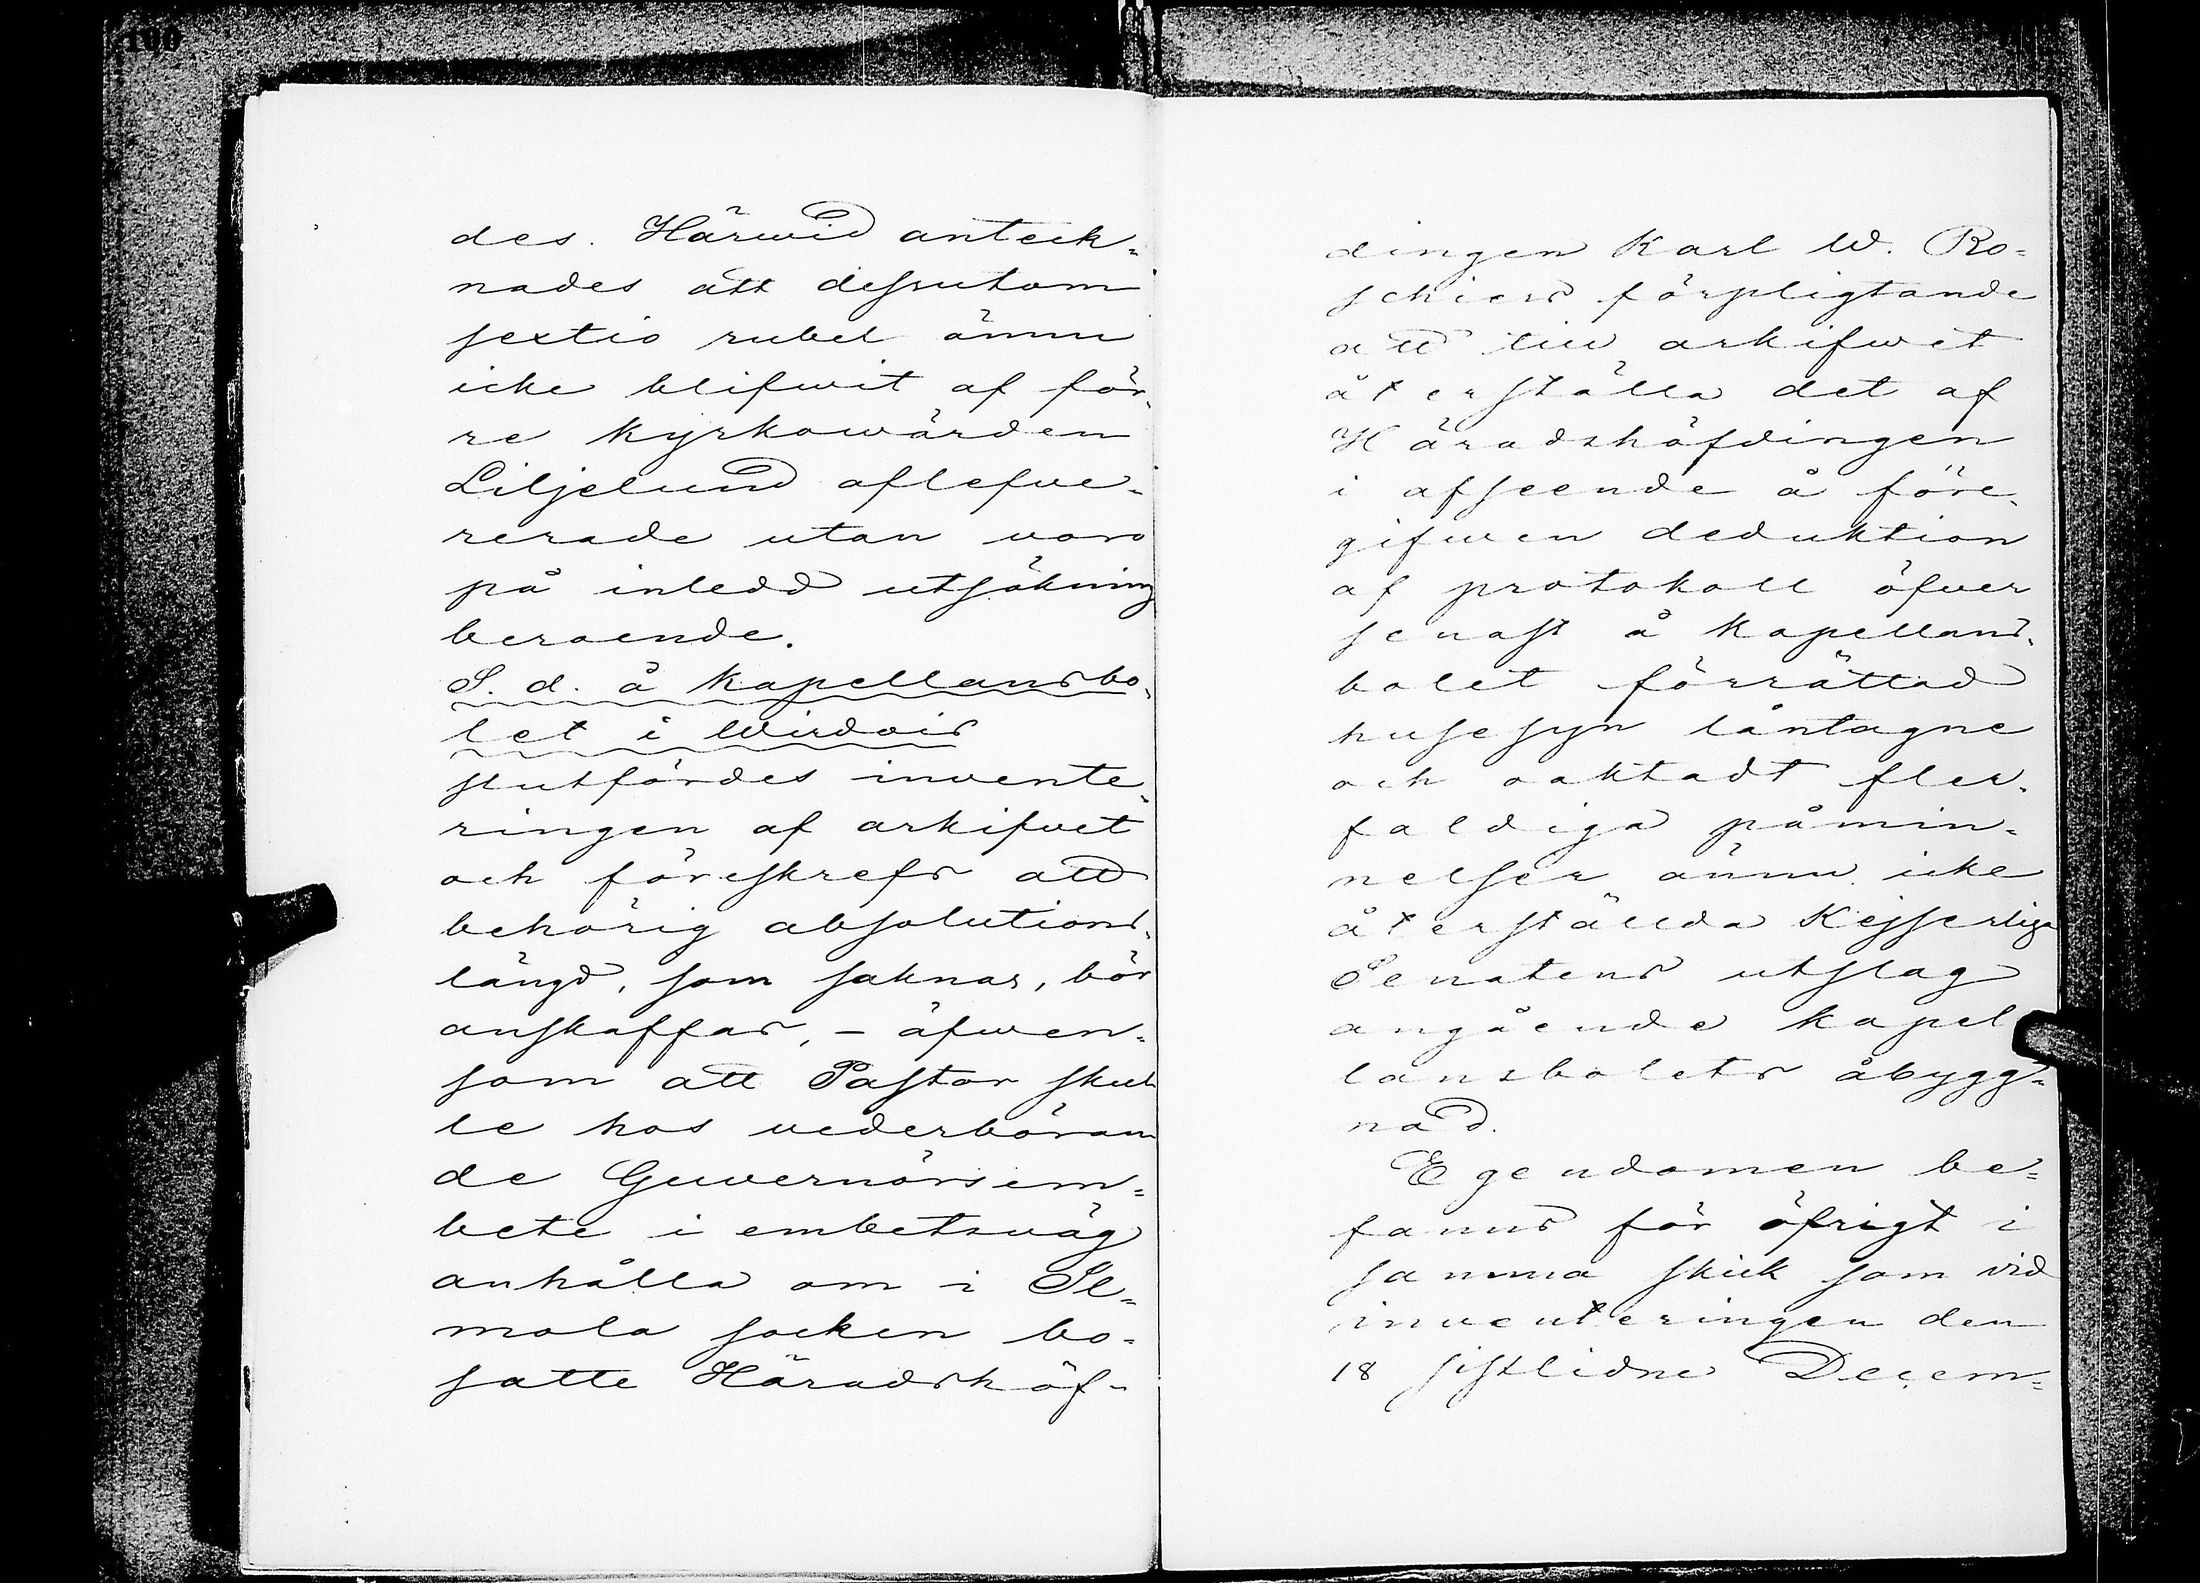 des. Härwid anteck-
nades att dessutom
sextio rubel ännu
icke blifwit af för-
re kyrkowärden
Liljelund aflefve-
rerade utan voro
på inledd utsökning
beroende.
S. d. å kapellansbo-
let i Wirdois
slutfördes invente-
ringen af arkifvet
och föreskrefs att
behörig absolutions-
längd, som saknas, bör
anskaffas, - äfwen-
som att Pastor skul-
le hos vederböran-
de Guvernörsem-
bete i embetsväg
anhålla om i Il-
mola socken bo-
satte Häradshöf-
dingen Karl W. Ro-
schiers förpligtande
att till arkifwet
återställa det af
Häradshöfdingen
i afseende å före-
gifwen deduktion
af protokoll öfver
senast å kapellans-
bolet förrättad
husesyn låntagne
och oaktadt fler-
faldiga påmin-
nelser ännu icke
återställda Kejserliga
Senatens utslag
angående kapel-
lansbolets åbygg-
nad.
Egendomen be-
fanns för öfrigt i
samma skick som vid
inventeringen den
18 sistlidne Decem-